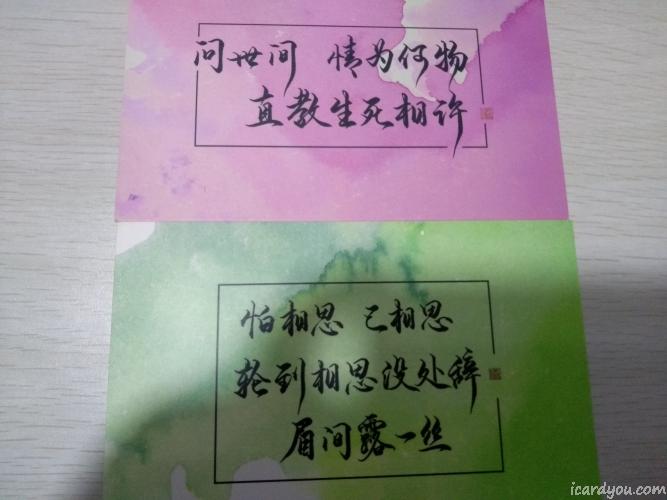 问世间 情为何物
直教生死相许
怕相思 已相思
轮到相思没处辞
眉间露一丝
icardyou.com